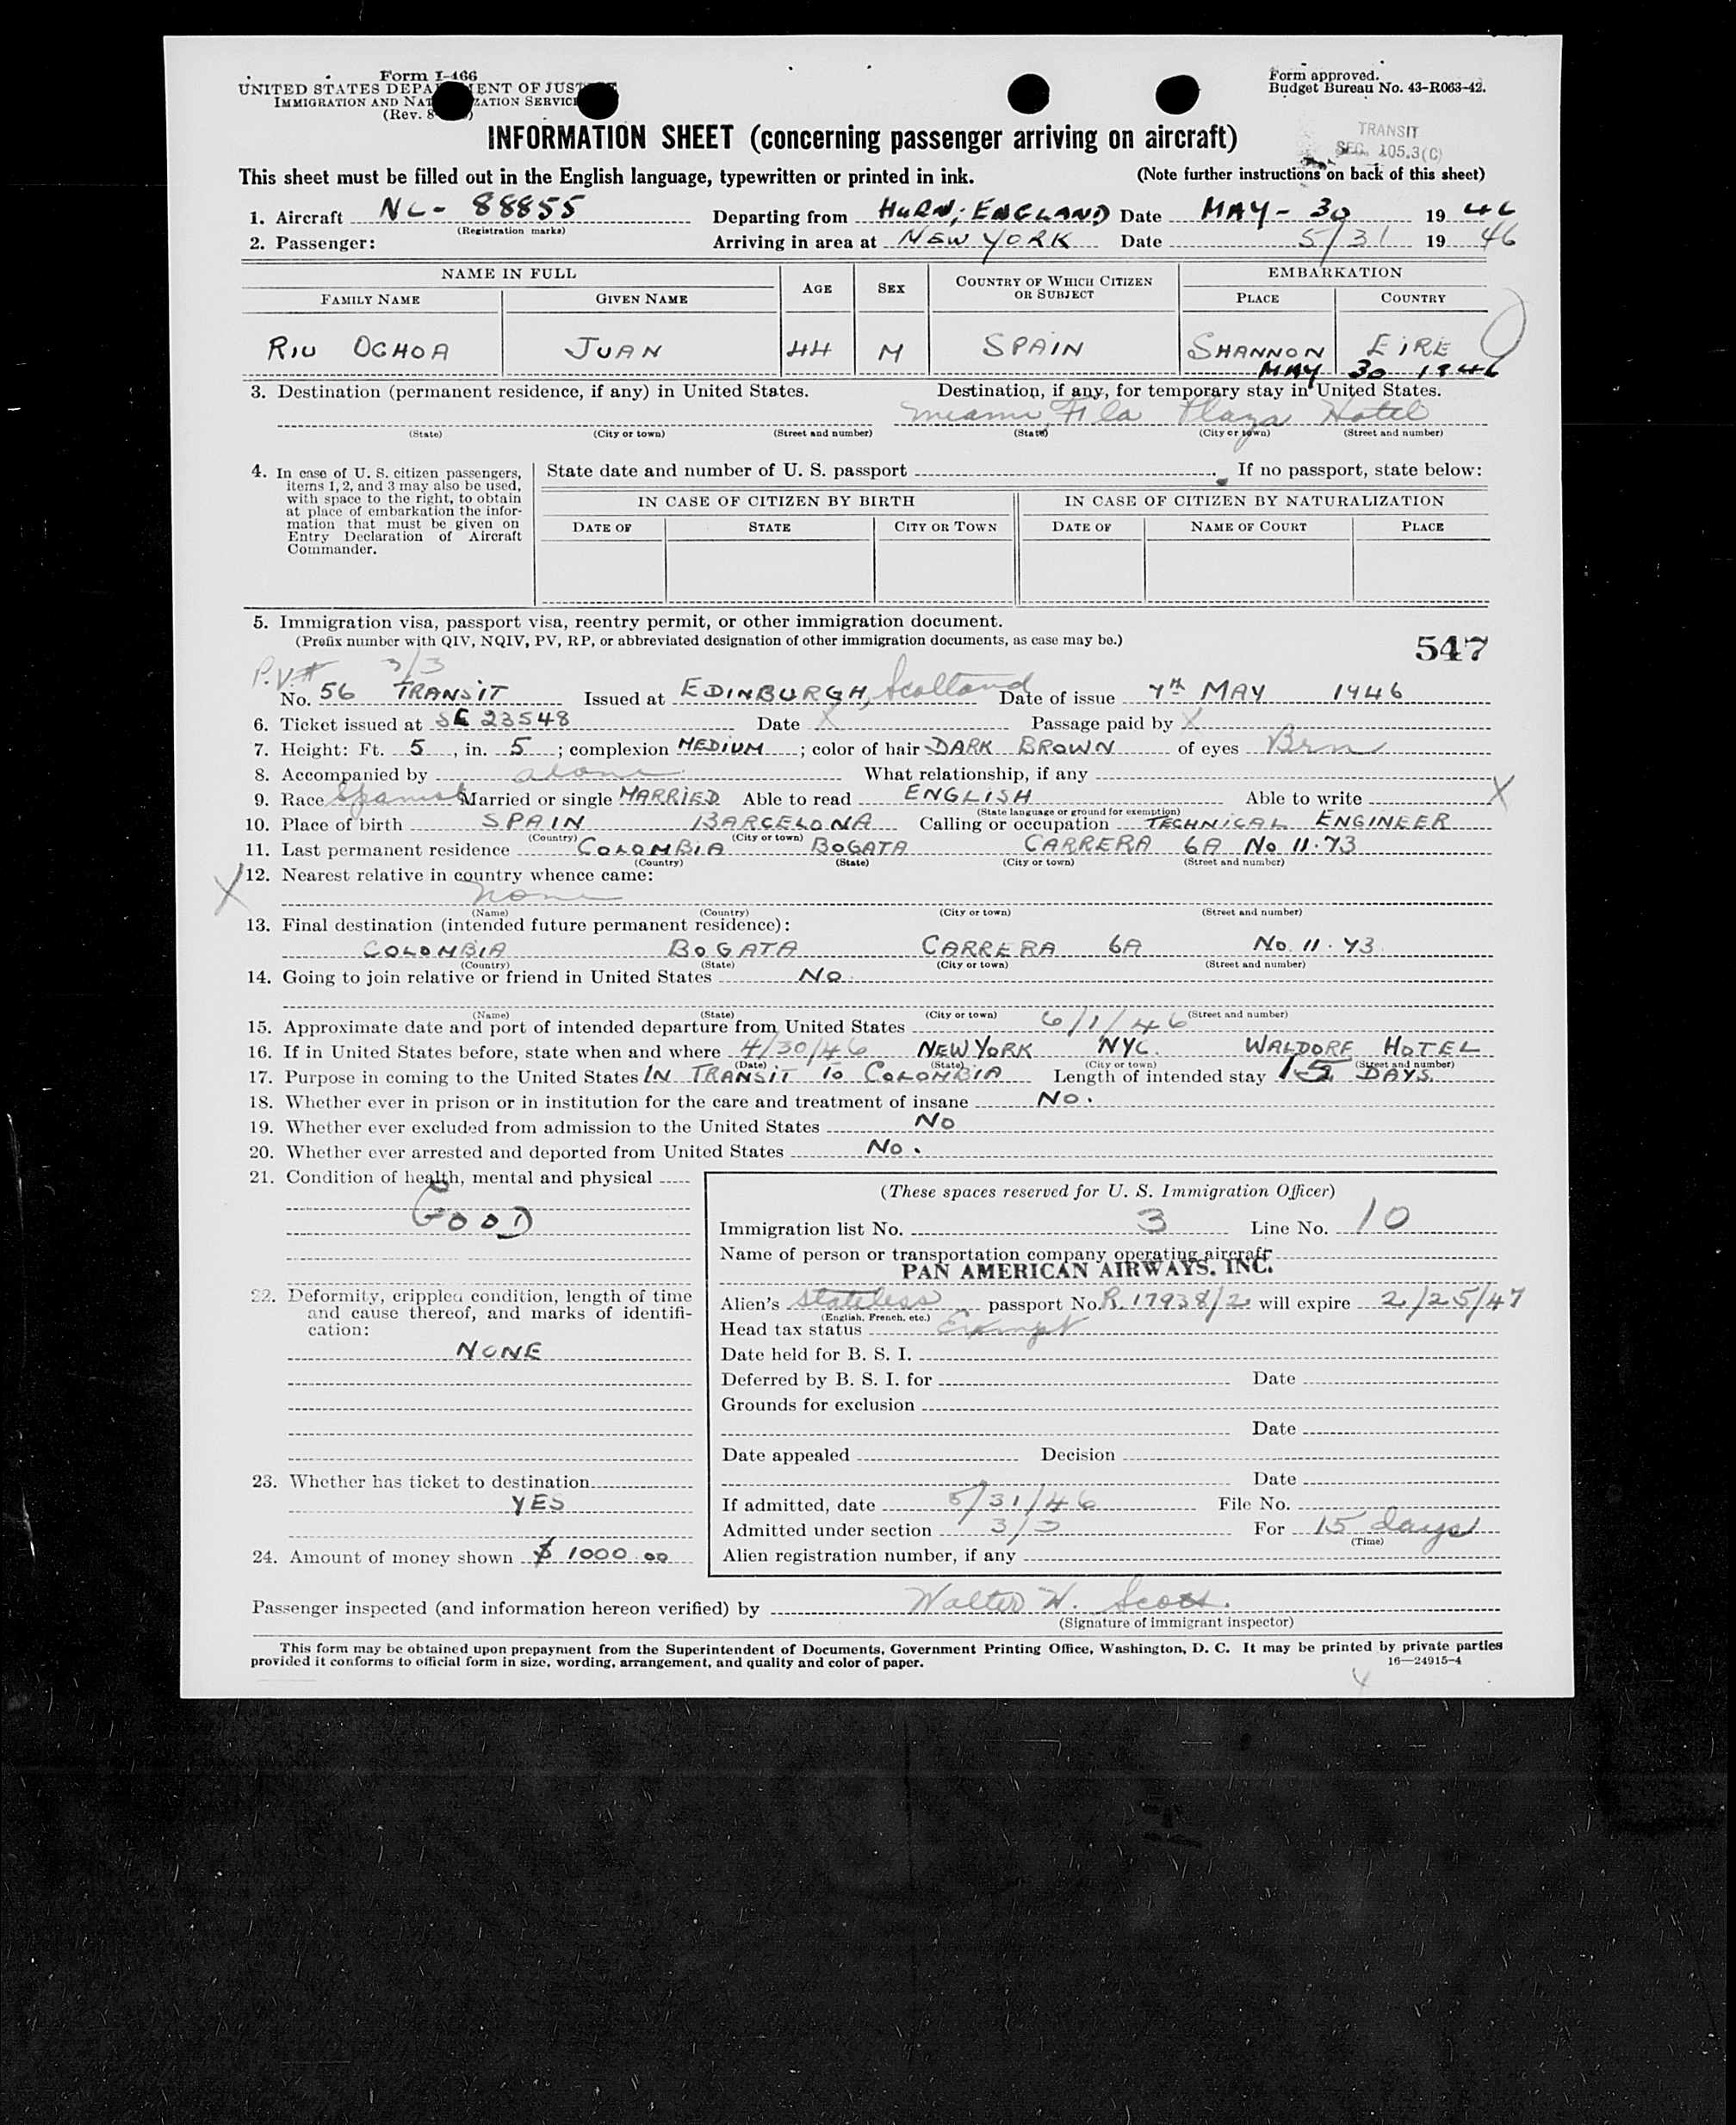 Form I-466
UNITED STATES DEPA ENT OF JUST
IMMIGRATION AND NAT ZATION SERVICE
(Rev. 8-
Form approved.
Budget Bureau No. 43-R063-42.
INFORMATION SHEET (concerning passenger arriving on aircraft)
TRANSIT
SEC. 105.3(C)
This sheet must be filled out in the English language, typewritten or printed in ink. (Note further instructions on back of this sheet)
1. Aircraft NC- 88855 Departing from HURN; ENGLAND Date MAY - 30 19 46
(Registration marks)
2. Passenger: Arriving in area at NEW YORK Date 5/31 19 46
NAME IN FULL AGE SEX COUNTRY OF WHICH CITIZEN OR SUBJECT EMBARKATION
FAMILY NAME GIVEN NAME PLACE COUNTRY
RIU OCHOA JUAN 44 M SPAIN SHANNON EIRE
MAY 30 1946
3. Destination (permanent residence, if any) in United States. Destination, if any, for temporary stay in United States.
Miami, Fla Plaza Hotel
(State) (City or town) (Street and number) (State) (City or town) (Street and number)
4. In case of U. S. citizen passengers, items 1, 2, and 3 may also be used, with space to the right, to obtain at place of embarkation the information that must be given on Entry Declaration of Aircraft Commander.
State date and number of U. S. passport . If no passport, state below:
IN CASE OF CITIZEN BY BIRTH IN CASE OF CITIZEN BY NATURALIZATION
DATE OF STATE CITY OR TOWN DATE OF NAME OF COURT PLACE
5. Immigration visa, passport visa, reentry permit, or other immigration document.
(Prefix number with QIV, NQIV, PV, RP, or abbreviated designation of other immigration documents, as case may be.)
547
P.V.# 3/3
No. 56 TRANSIT Issued at EDINBURGH, Scotland Date of issue 7th MAY 1946
6. Ticket issued at SC 23548 Date X Passage paid by X
7. Height: Ft. 5, in. 5; complexion MEDIUM; color of hair DARK BROWN of eyes Brn
8. Accompanied by alone What relationship, if any
9. Race Spanish Married or single MARRIED Able to read ENGLISH Able to write X
(State language or ground for exemption)
10. Place of birth SPAIN BARCELONA Calling or occupation TECHNICAL ENGINEER
(Country) (City or town)
11. Last permanent residence COLOMBIA BOGATA CARRERA 6A No 11.73
(Country) (State) (City or town) (Street and number)
X 12. Nearest relative in country whence came:
none
(Name) (Country) (City or town) (Street and number)
13. Final destination (intended future permanent residence):
COLOMBIA BOGATA CARRERA 6A No. 11.73
(Country) (State) (City or town) (Street and number)
14. Going to join relative or friend in United States No.
(Name) (State) (City or town) (Street and number)
15. Approximate date and port of intended departure from United States 6/1/46
16. If in United States before, state when and where 4/30/46 NEW YORK NYC. WALDORF HOTEL
(Date) (State) (City or town) (Street and number)
17. Purpose in coming to the United States IN TRANSIT TO COLOMBIA Length of intended stay 15 DAYS.
18. Whether ever in prison or in institution for the care and treatment of insane No.
19. Whether ever excluded from admission to the United States No
20. Whether ever arrested and deported from United States No.
21. Condition of health, mental and physical
GOOD
22. Deformity, crippled condition, length of time and cause thereof, and marks of identification:
NONE
23. Whether has ticket to destination
YES
24. Amount of money shown $ 1000.00
(These spaces reserved for U. S. Immigration Officer)
Immigration list No. 3 Line No. 10
Name of person or transportation company operating aircraft
PAN AMERICAN AIRWAYS, INC.
Alien's stateless passport No. R.17938/2 will expire 2/25/47
(English, French, etc.)
Head tax status Exempt
Date held for B. S. I.
Deferred by B. S. I. for Date
Grounds for exclusion
Date
Date appealed Decision
Date
If admitted, date 5/31/46 File No.
Admitted under section 3/3 For 15 days
(Time)
Alien registration number, if any
Passenger inspected (and information hereon verified) by Walter W. Scott.
(Signature of immigrant inspector)
This form may be obtained upon prepayment from the Superintendent of Documents, Government Printing Office, Washington, D. C. It may be printed by private parties
provided it conforms to official form in size, wording, arrangement, and quality and color of paper. 16—24915-4